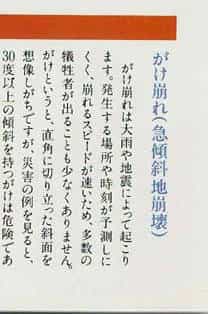 がけ崩れ(急傾斜地崩壊)
がけ崩れは大雨や地震によって起こり
ます。発生する場所や時刻が予測しに
くく、崩れるスピードが速いため、多数の
犠牲者が出ることも少なくありません。
がけというと、直角に切り立った斜面を
想像しがちですが、災害の例を見ると、
30度以上の傾斜を持つがけは危険であ